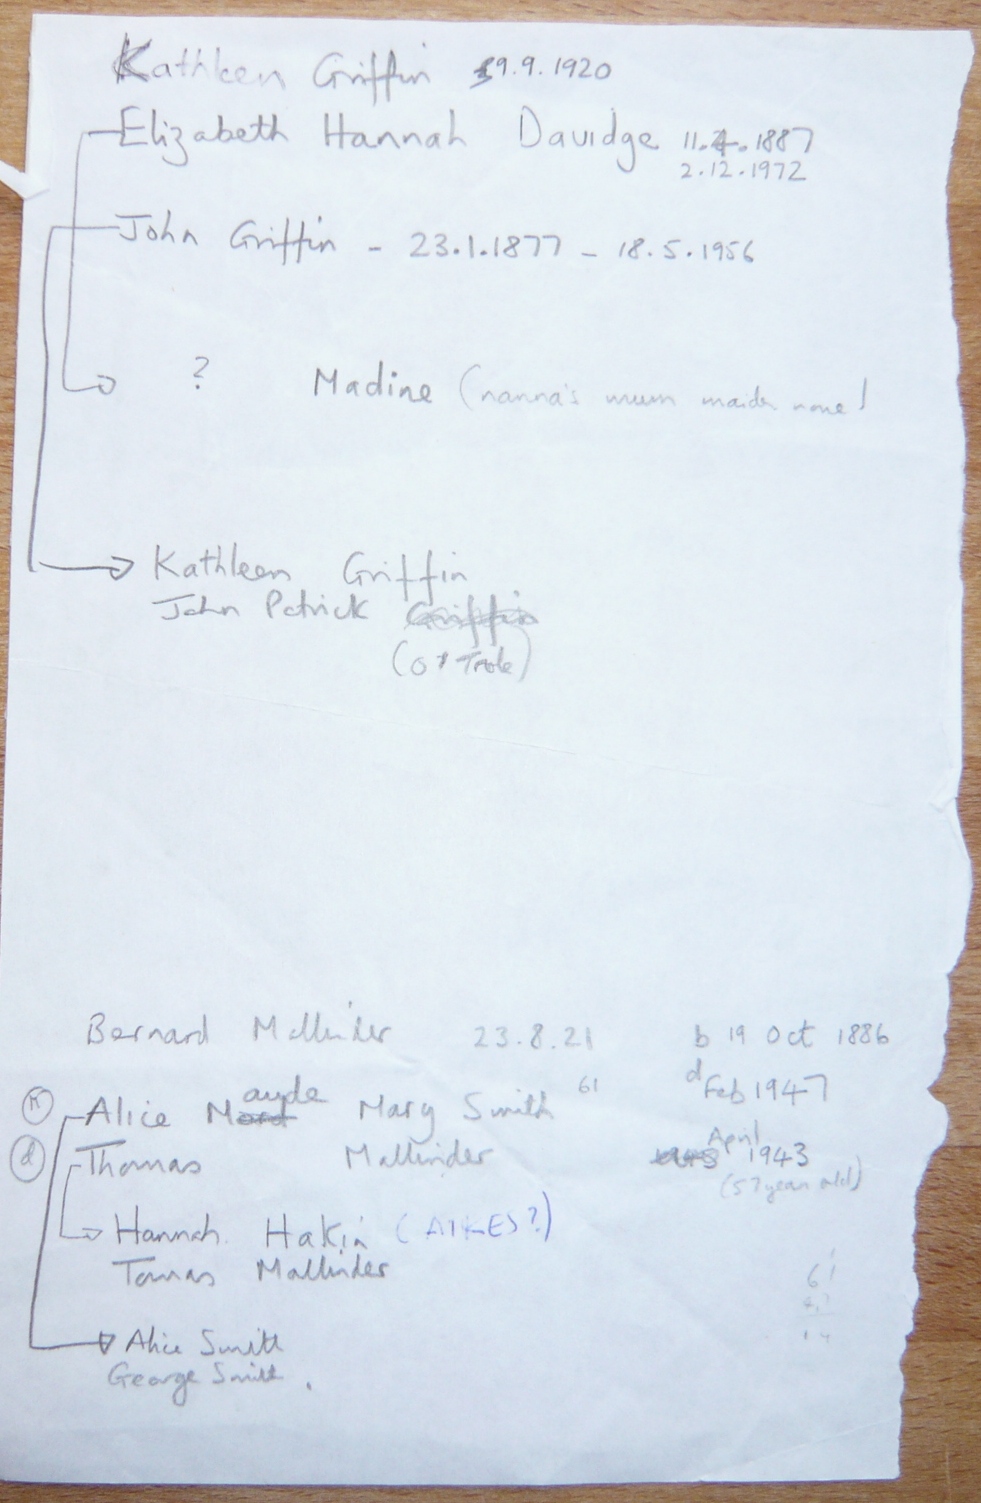 Kathleen Griffin 9.9.1920
Elizabeth Hannah Davidge 11.4.1887
2.12.1972
John Griffin - 23.1.1877 - 18.5.1956
? Madine (nanna's mum maiden name)
Kathleen Griffin
John Patrick Griffin
(or Toole)
Bernard Mallinder 23.8.21 b 19 Oct 1886
d Feb 1947
Alice Maude Mary Smith 61
d Thomas Mallinder April 1943
(57 year old)
Hannah Hakin (AIKES?)
Tomas Mallinder
61
14
Alice Smith
George Smith.